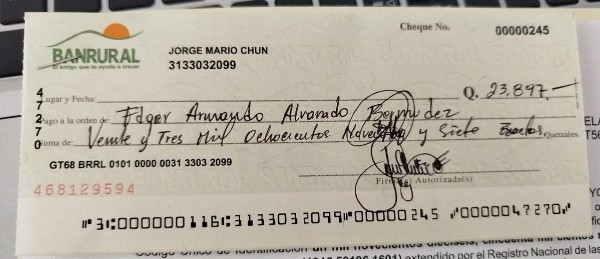 Cheque No. 00000245
BANRURAL
El amigo que te ayuda a crecer
JORGE MARIO CHUN
3133032099
Lugar y Fecha: Q. 23,897.—
Pago a la orden de: Edgar Armando Alvarado Bermudez
Suma de: Veinte y Tres Mil Ochocientos Noventa y Siete Exactos. Quetzales.
47270
GT68 BRRL 0101 0000 0031 3303 2099
Firma(s) Autorizada(s)
468129594
⑈3⑆000000116⑆3133032099⑈00000245 ⑈0000047270⑈
Código Único de Identificación un mil novecientos dieciséis, cincuenta mil cientos
extendido por el Registro Nacional de las